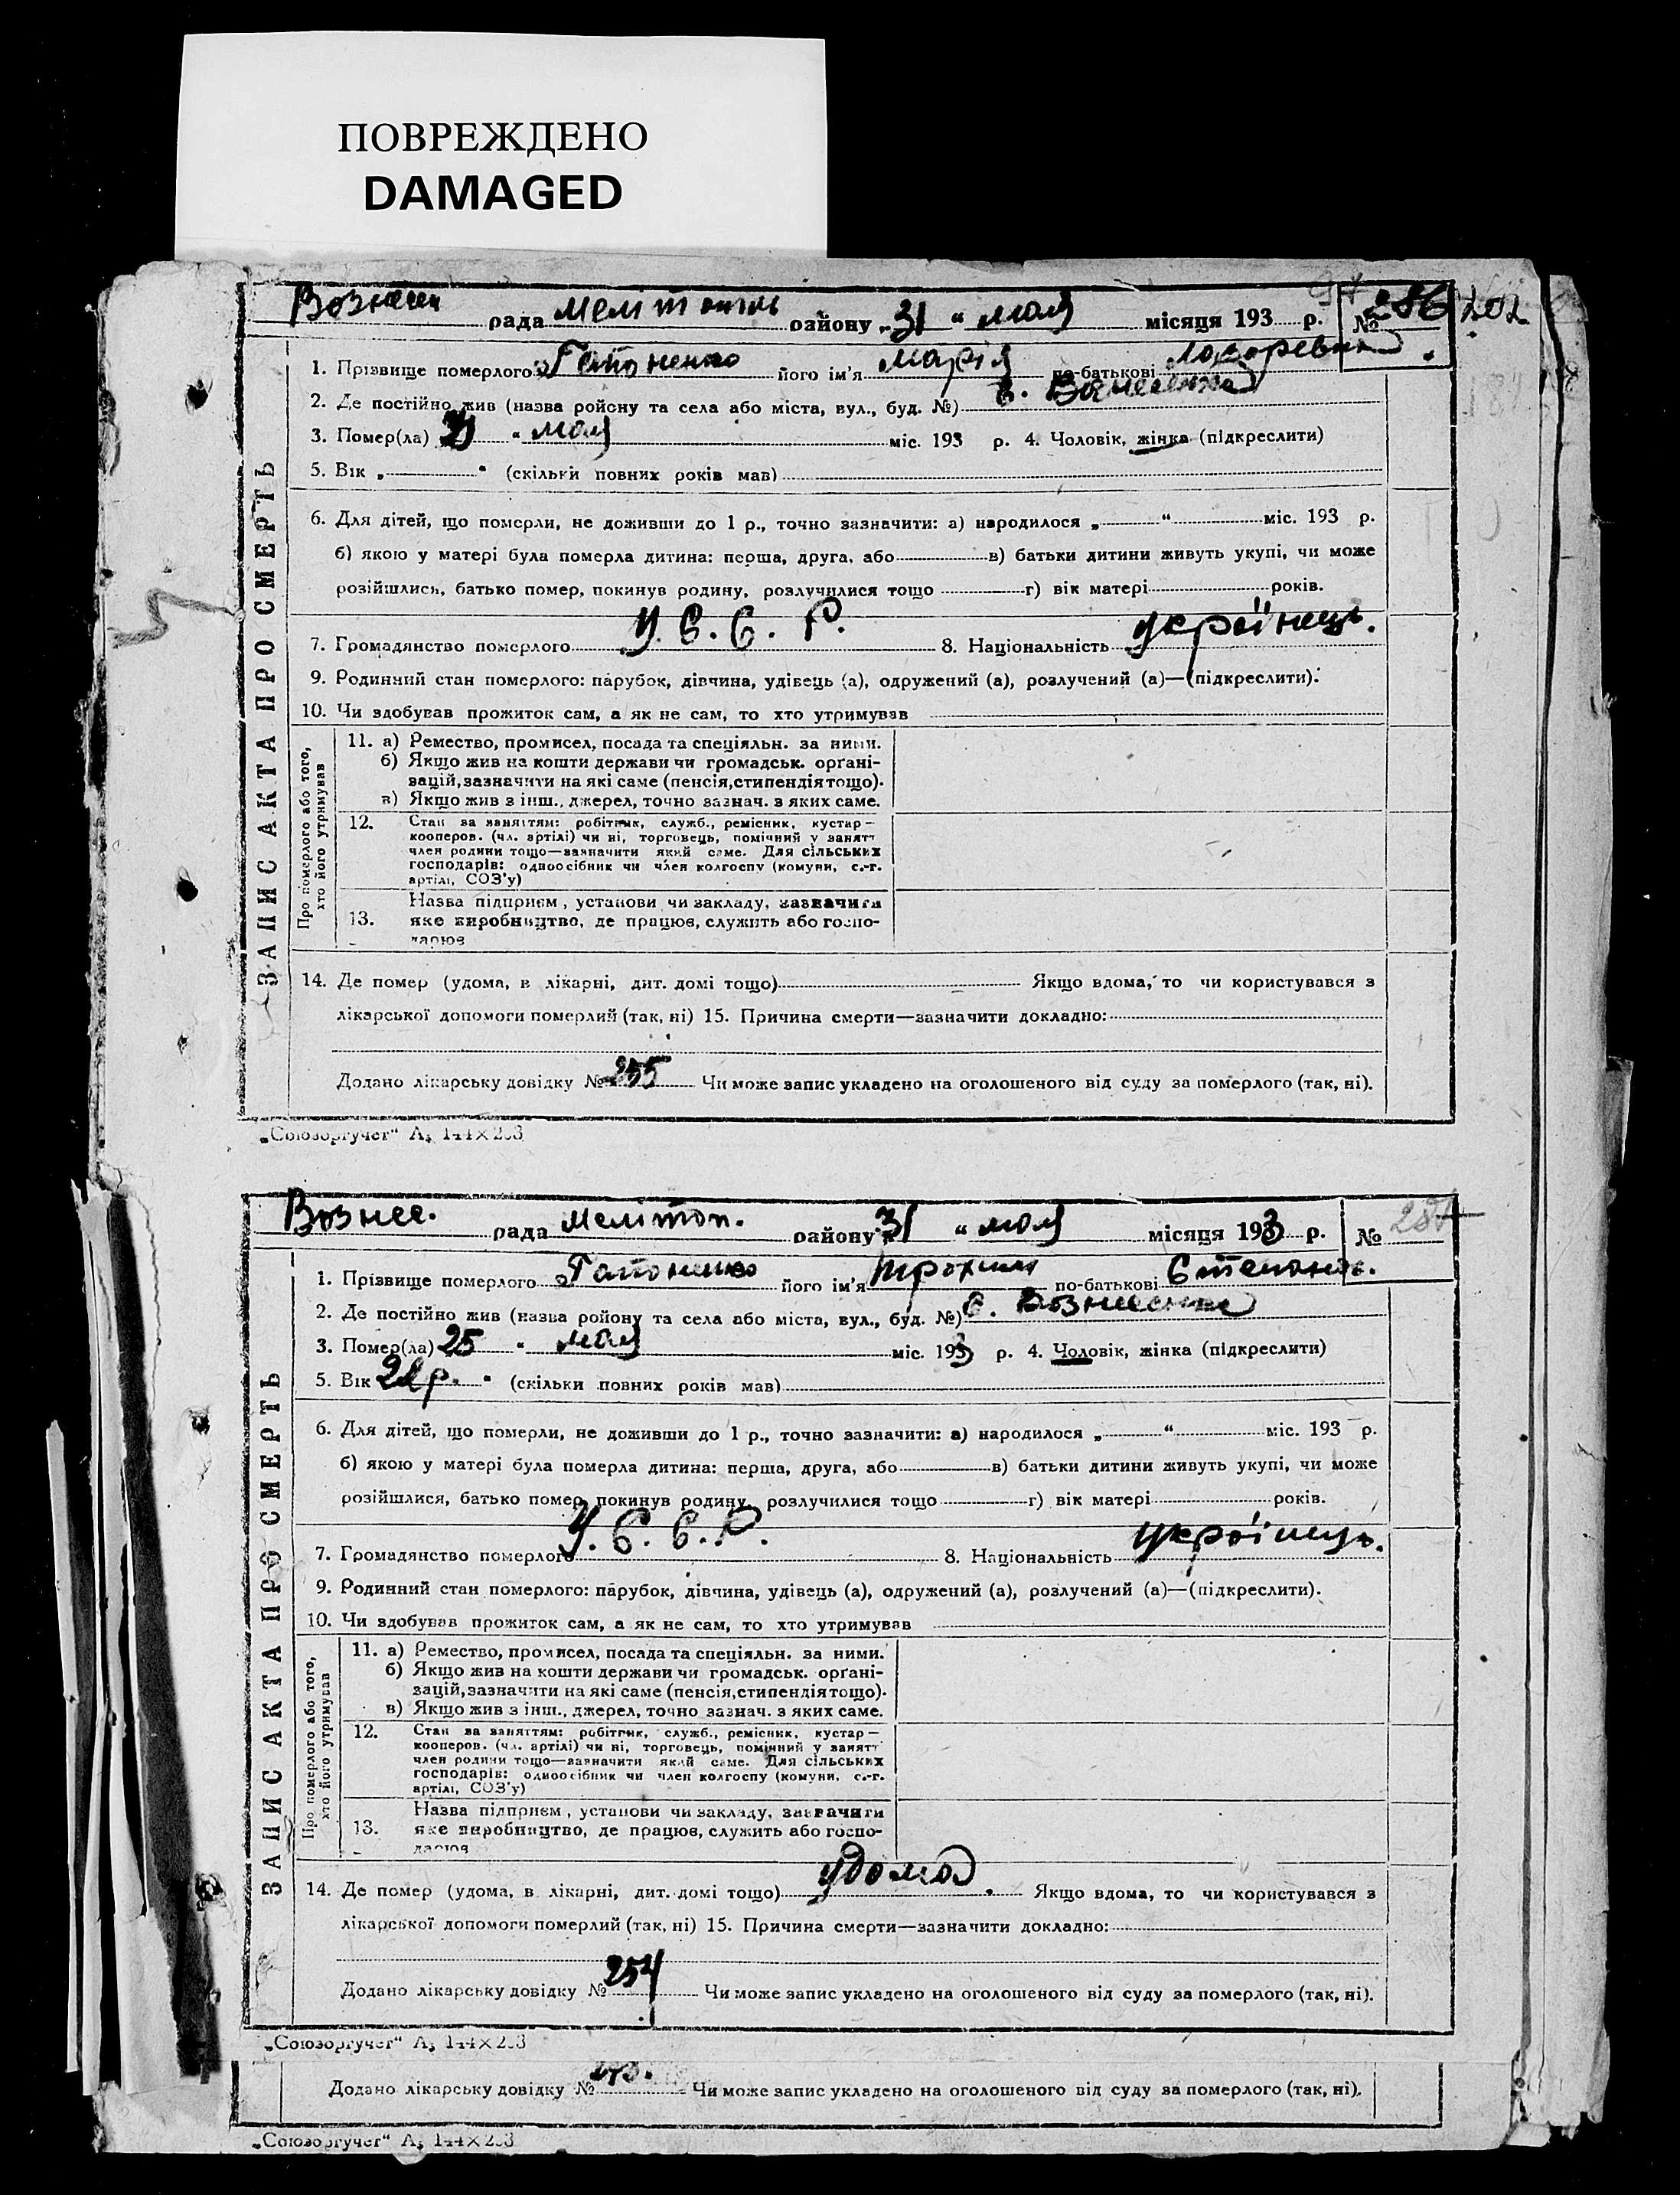 ПОВРЕЖДЕНО
DAMAGED
Вознесен рада Мелітополь району „31 “ мая місяця 193 р. № 286 202
1. Прізвище померлого Гапоненко його ім'я Марія по-батькові Лазаревна
2. Де постійно жив (назва ройону та села або міста, вул., буд. №) с. Вознесенка
3. Помер(ла) 31 “ мая міс. 193 р. 4. Чоловік, жінка (підкреслити)
5. Вік „ “ (скільки повних років мав)
6. Для дітей, що померли, не доживши до 1 р., точно зазначити: а) народилося „ “ міс. 193 р.
б) якою у матері була померла дитина: перша, друга, або в) батьки дитини живуть укупі, чи може
розійшлись, батько помер, покинув родину, розлучилися тощо г) вік матері років.
7. Громадянство померлого У. С. С. Р. 8. Національність українець.
9. Родинний стан померлого: парубок, дівчина, удівець (а), одружений (а), розлучений (а)—(підкреслити).
10. Чи здобував прожиток сам, а як не сам, то хто утримував
ЗАПИС АКТА ПРО СМЕРТЬ
Про померлого або того,
хто його утримував
11. а) Ремество, промисел, посада та спеціяльн. за ними.
б) Якщо жив на кошти держави чи громадськ. орґані-
зацій, зазначити на які саме (пенсія, стипендія тощо).
в) Якщо жив з інш., джерел, точно зазнач. з яких саме.
12. Стан за заняттям: робітник, служб., ремісник, кустар—
кооперов. (чл. артілі) чи ні, торговець, помічний у занятт
член родини тощо—зазначити який саме. Для сільських
господарів: одноосібник чи член колгоспу (комуни, с.-г.
артілі, СОЗ'у)
Назва підприєм, установи чи закладу, зазначити
13. яке виробництво, де працює, служить або госпо-
дарює
14. Де помер (удома, в лікарні, дит. домі тощо) Якщо вдома, то чи користувався з
лікарської допомоги померлий (так, ні) 15. Причина смерти—зазначити докладно:
Додано лікарську довідку № 255 Чи може запис укладено на оголошеного від суду за померлого (так, ні).
„Союзоргучет“ А₅ 144×203
Вознес. рада Мелітоп. району 31 “ мая місяця 1933 р. № 287
1. Прізвище померлого Гапоненко його ім'я Трохим по-батькові Степанов.
2. Де постійно жив (назва ройону та села або міста, вул., буд. №) с. Вознесенка
3. Помер(ла) 25 “ мая міс. 1933 р. 4. Чоловік, жінка (підкреслити)
5. Вік р. “ (скільки повних років мав)
6. Для дітей, що померли, не доживши до 1 р., точно зазначити: а) народилося „ “ міс. 193 р.
б) якою у матері була померла дитина: перша, друга, або в) батьки дитини живуть укупі, чи може
розійшлися, батько помер, покинув родину, розлучилися тощо г) вік матері років.
7. Громадянство померлого У. С. С. Р. 8. Національність українець.
9. Родинний стан померлого: парубок, дівчина, удівець (а), одружений (а), розлучений (а)—(підкреслити).
10. Чи здобував прожиток сам, а як не сам, то хто утримував
ЗАПИС АКТА ПРО СМЕРТЬ
Про померлого або того,
хто його утримував
11. а) Ремество, промисел, посада та спеціяльн. за ними.
б) Якщо жив на кошти держави чи громадськ. орґані-
зацій, зазначити на які саме (пенсія, стипендія тощо).
в) Якщо жив з інш., джерел, точно зазнач. з яких саме.
12. Стан за заняттям: робітник, служб., ремісник, кустар—
кооперов. (чл. артілі) чи ні, торговець, помічний у занятт
член родини тощо—зазначити який саме. Для сільських
господарів: одноосібник чи член колгоспу (комуни, с.-г.
артілі, СОЗ'у)
Назва підприєм, установи чи закладу, зазначити
13. яке виробництво, де працює, служить або госпо-
дарює
14. Де помер (удома, в лікарні, дит. домі тощо) удома. Якщо вдома, то чи користувався з
лікарської допомоги померлий (так, ні) 15. Причина смерти—зазначити докладно:
Додано лікарську довідку № 254 Чи може запис укладено на оголошеного від суду за померлого (так, ні).
„Союзоргучет“ А₅ 144×203
Додано лікарську довідку № Чи може запис укладено на оголошеного від суду за померлого (так, ні).
„Союзоргучет“ А₅ 144×203